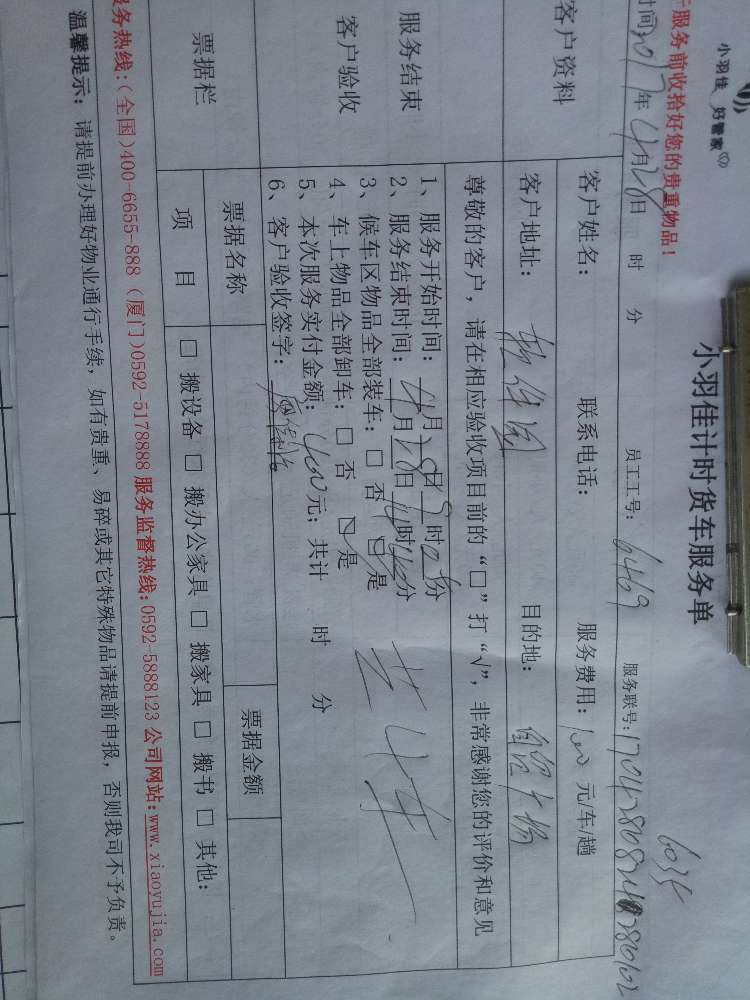 小羽佳 好管家
行服务前收拾好您的贵重物品！
小羽佳计时货车服务单
6035
时间2017年4月28日 时 分 员工工号：6469 服务联号：
客户资料
客户姓名： 联系电话： 服务费用：100元/车/趟
客户地址： 软件园 目的地：
服务结束
客户验收
尊敬的客户，请在相应验收项目前的“□”打“√”，非常感谢您的评价和意见
1、服务开始时间：4月28日 时 分
2、服务结束时间：4月28日 时 分
3、候车区物品全部装车：□ 否 ☑ 是
4、车上物品全部卸车：□ 否 ☑ 是
5、本次服务实付金额：400元；共计 时 分
6、客户验收签字：
共4车
票据栏
票据名称 票据金额
项 目 □ 搬设备 □ 搬办公家具 □ 搬家具 □ 搬书 □ 其他：
服务热线：（全国）400-6655-888（厦门）0592-5178888 服务监督热线：0592-5888123 公司网站：www.xiaoyujia.com
温馨提示：请提前办理好物业通行手续，如有贵重、易碎或其它特殊物品请提前申报，否则我司不予负责。